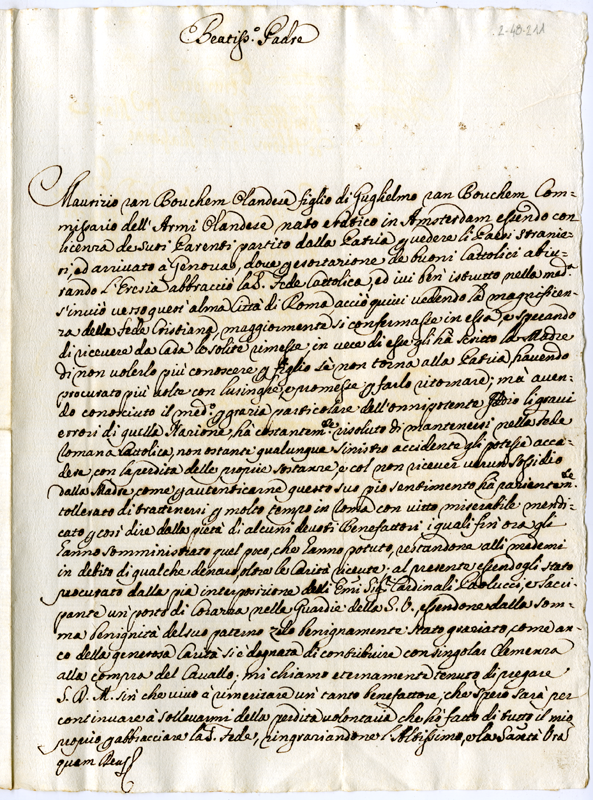 2-48-211
Beatiss.o Padre
Maurizio van Bouchem Olandese figlio di Guglielmo van Bouchem Com=
missario dell'Armi Olandese nato eretico in Amsterdam essendo con
licenza de Suoi Parenti partito dalla Patria p vedere li Paesi Stranie=
ri, ed arrivato à Genova, dove p esortazione de buoni Cattolici abiu=
rando l'Eresia abbracciò la S. Fede Cattolica, ed ivi ben istrutto nella med.a
s'inviò verso quest'alma Città di Roma acciò quivi vedendo la magnificen=
za della Fede Cristiana, maggiormente si confermasse in essa, e sperando
di ricevere da Casa le solite rimesse, in vece di esse gli hà scritto la Madre
di non volerlo più conoscere p figlio se non torna alla Patria, havendo
procurato più volte con lusinghe, e promesse p farlo ritornare; mà aven=
do conosciuto il med.o p grazia particolare dell'onnipotente Iddio li gravi
errori di quella Nazione, hà costantem.te risoluto di mantenersi nella fede
Romana Cattolica, non ostante qualunque sinistro accidente gli potesse acca=
dere, con la perdita delle proprie sostanze, e col non ricever verun sossidio
dalla Madre, come p autenticarne questo suo pio sentimento hà pazientem.te
tollerato di trattenersi p molto tempo in Roma con vitto miserabile mendi=
cato p così dire dalla pietà di alcuni devoti Benefattori i quali fin ora gli
hanno somministrato quel poco, che hanno potuto, restandone alli medemi
in debito di qualche denaro oltre le Carità ricevute: al presente essendogli stato
procurato dalla pia interposizione delli Emi Sig.ri Cardinali Paolucci, e Sacri=
pante un posto di Corazza nella Guardie della S. V., essendone dalla som=
ma benignità del suo paterno zelo benignamente stato graziato, come an=
co della generosa Carità si è degnata di contribuire con singolar Clemenza
alla compra del Cavallo: mi chiamo eternamente tenuto di pregare
S. D. M. sin che vivo à rimeritare un tanto benefattore, che spero sarà per
continuare à sollevarmi della perdita volontaria che hò fatto di tutto il mio
proprio p abbracciare la S. Fede, ringraziandone l'Altissimo, e la Santà Vra
quam Deus